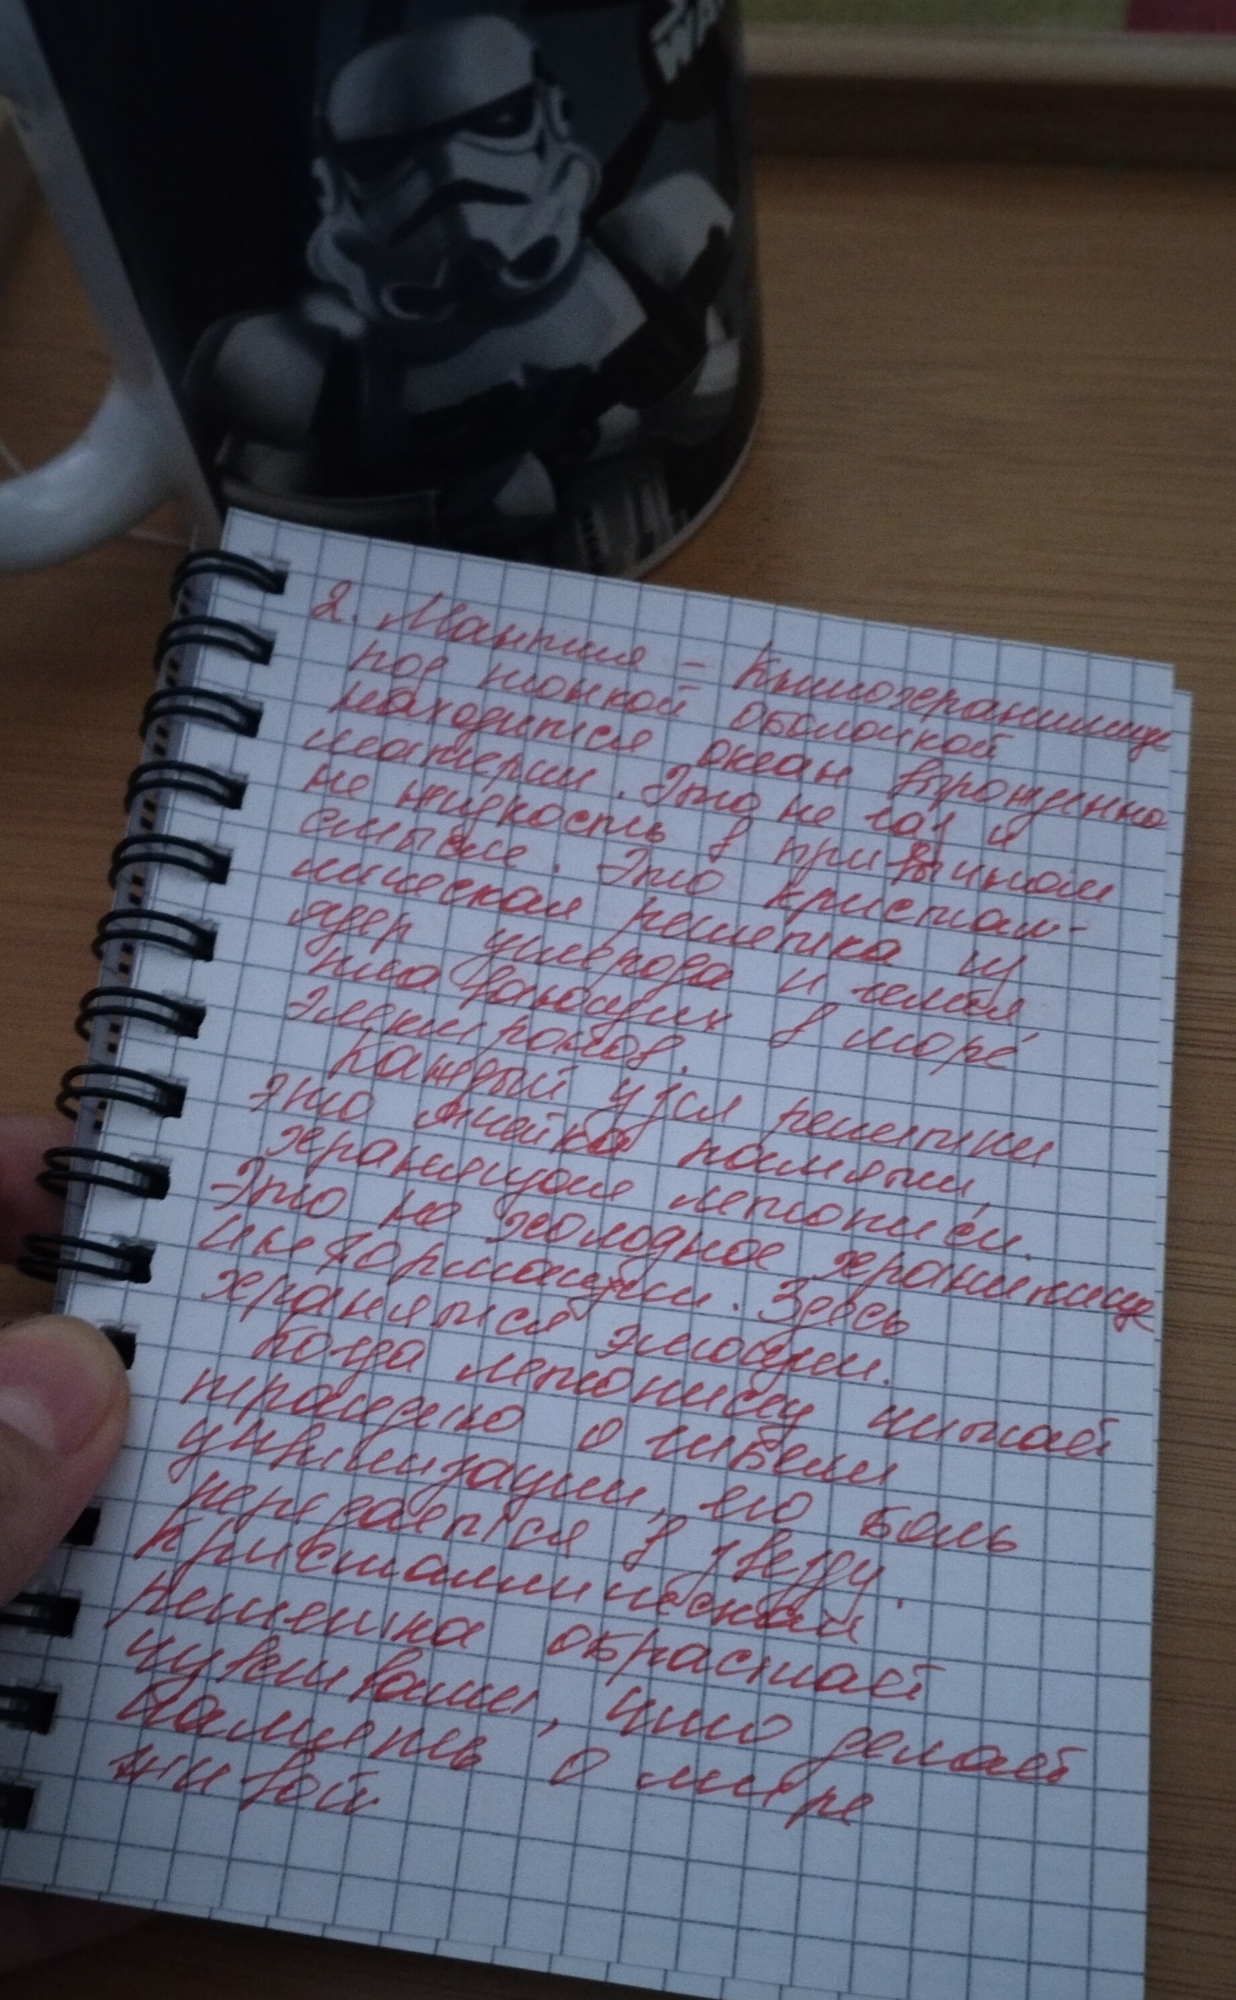 WA
2. Мантия - Книгохранилище
под тонкой оболочкой
находится океан вырожденно
материи. Это не газ и
не жидкость в привычном
смысле. Это кристал-
лическая решетка из
ядер углерода и гелия,
плавающих в море
электронов.
Каждый узел решетки
это ячейка памяти,
хранящая летописи.
Это не холодное хранилище
информации. Здесь
хранятся эмоции.
Когда летописец читает
трагедию о гибели
цивилизации, его боль
передается в звезду.
Кристаллическая
решетка обрастает
чувствами, что делает
память о мире
живой